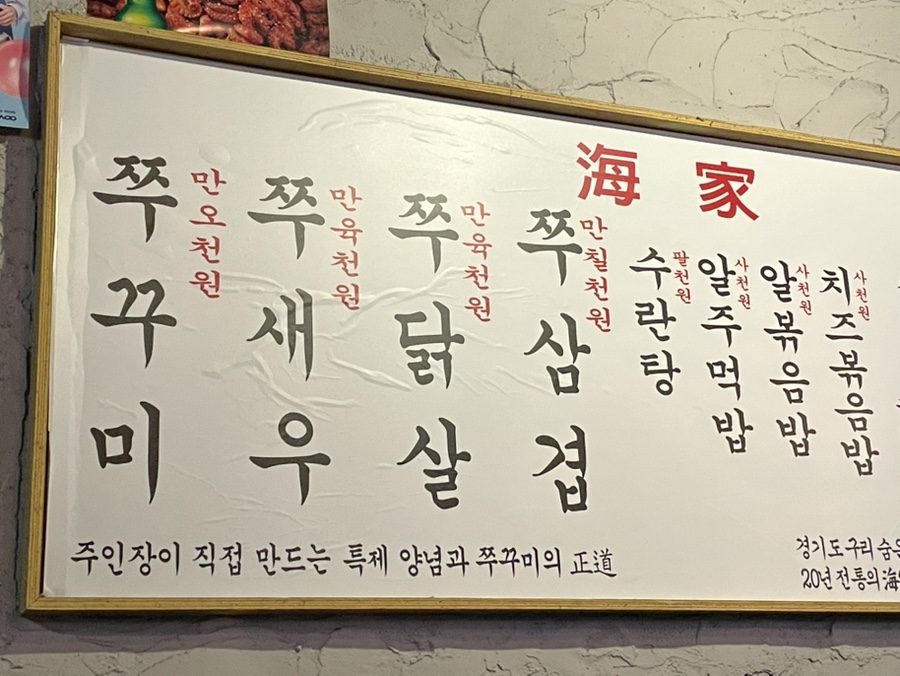 海家
쭈꾸미
만오천원
쭈새우
만육천원
쭈닭살
만육천원
쭈삼겹
만칠천원
수란탕
팔천원
알주먹밥
사천원
알볶음밥
사천원
치즈볶음밥
사천원
주인장이 직접 만드는 특제 양념과 쭈꾸미의 正道
경기도 구리 숨은
20년 전통의 海